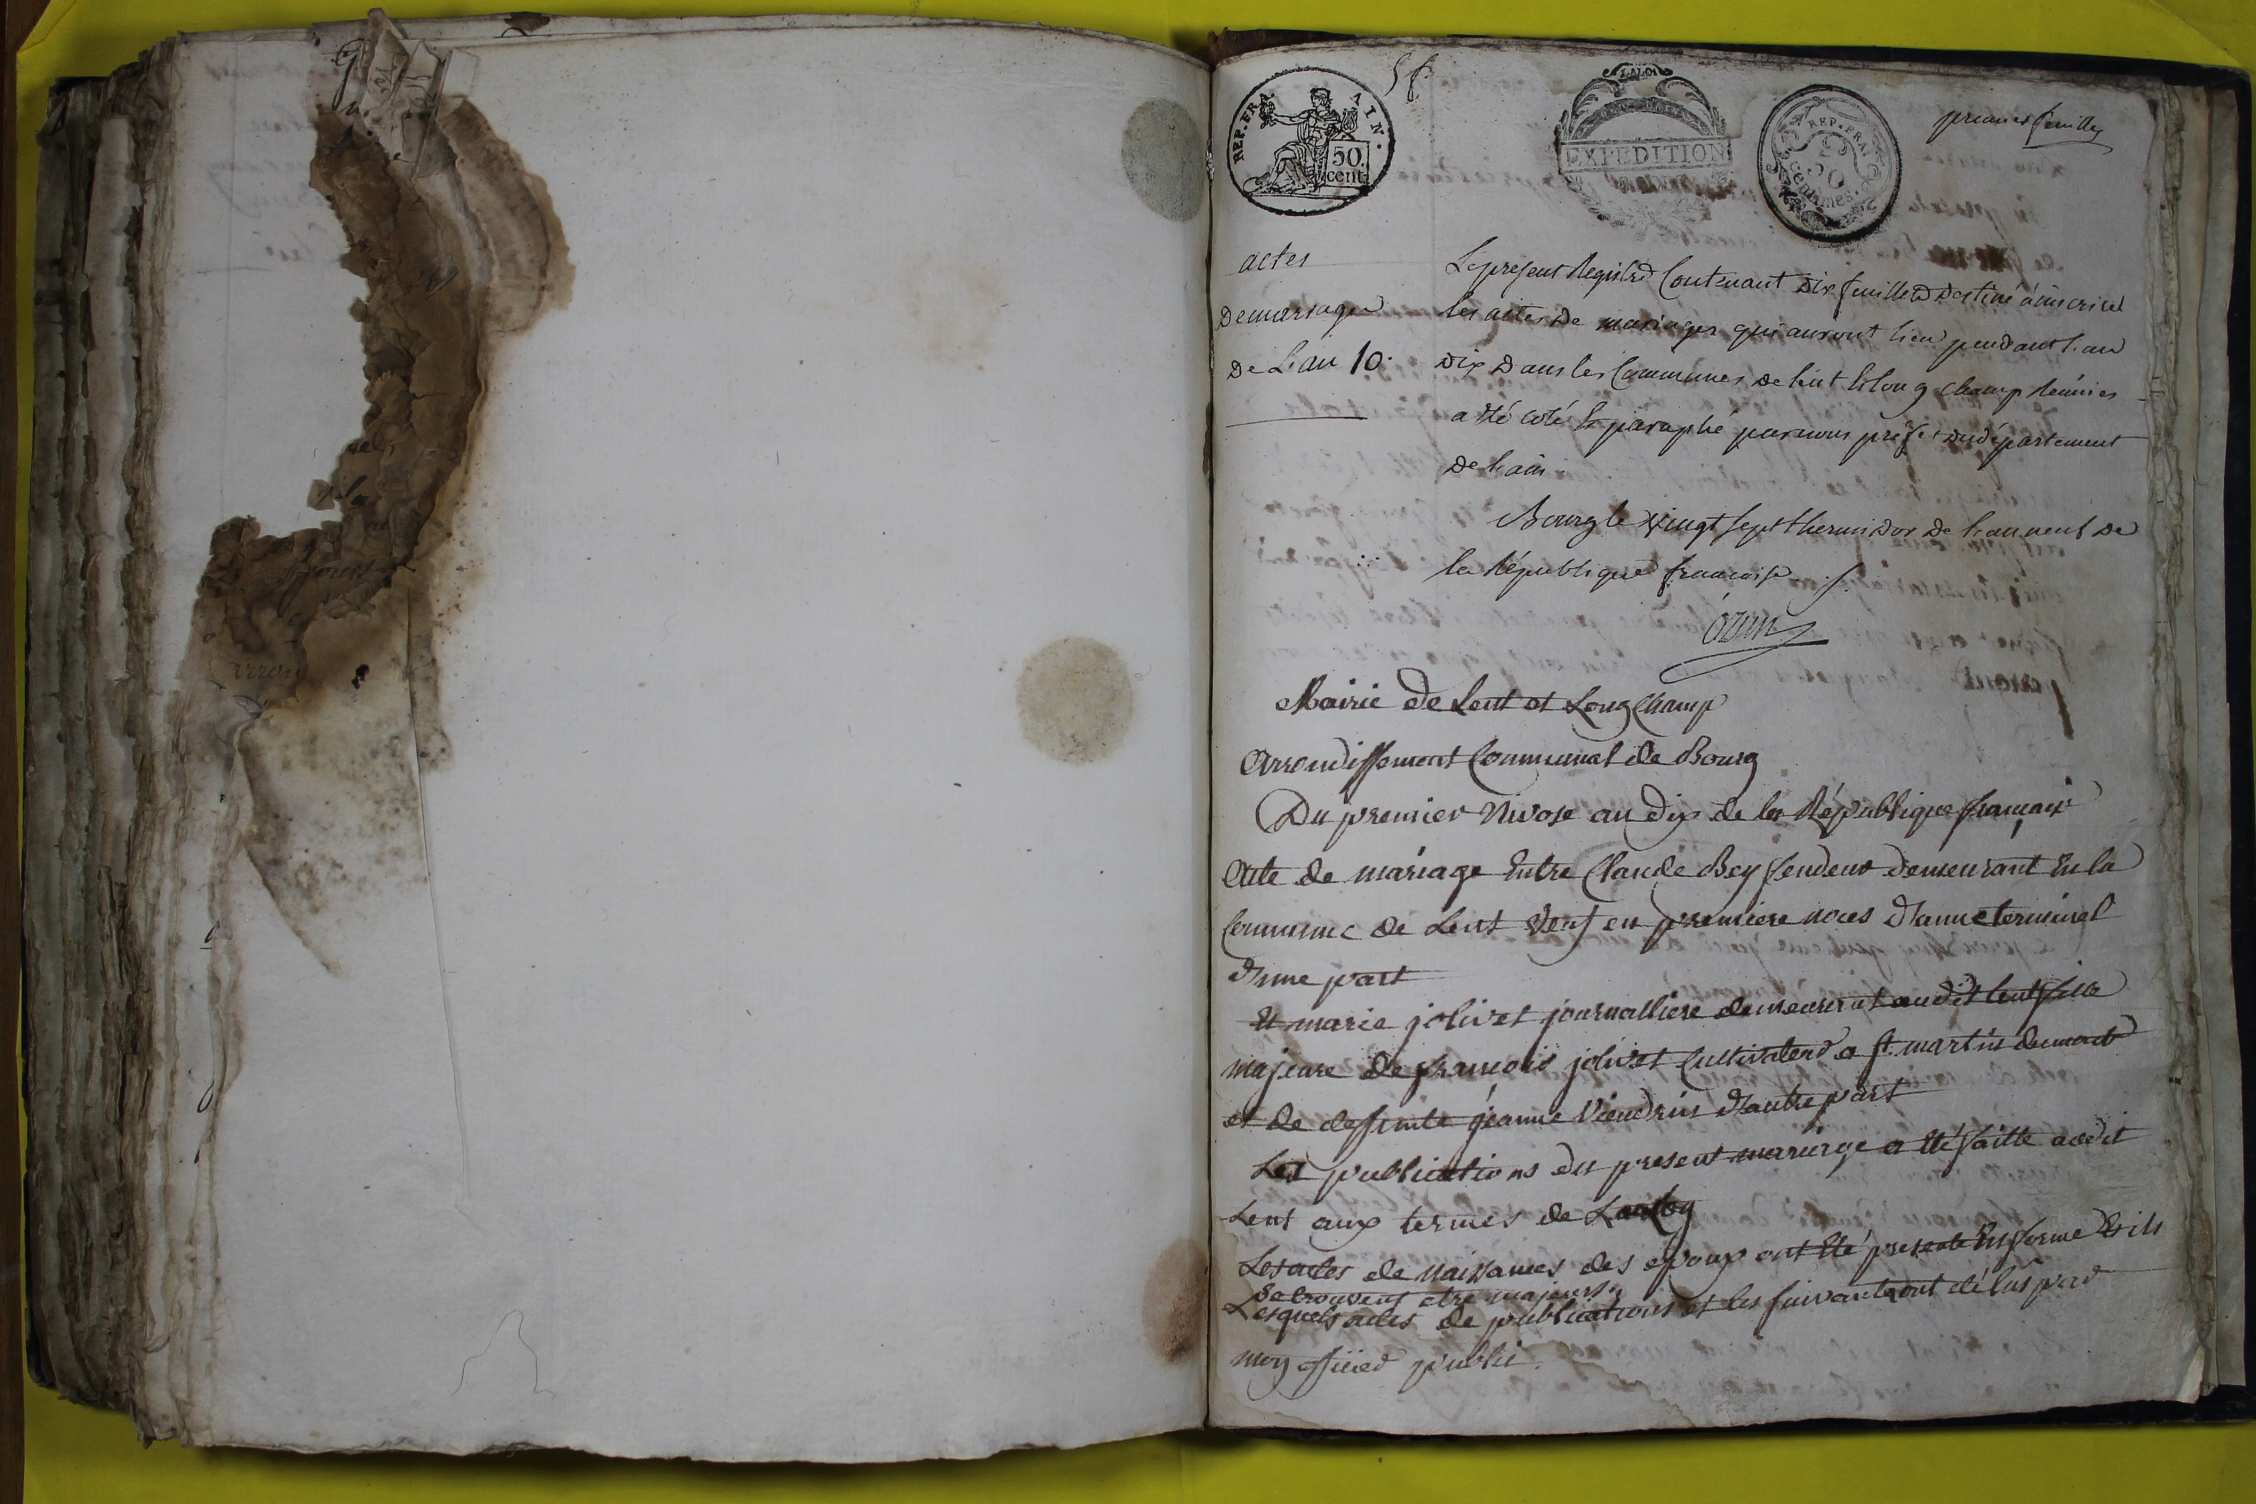 5 f.
REP. FRA. AIN.
50. cent.
LA LOI
EXPEDITION
REP. FRA
50
centimes.
premier feuillet
actes
De mariage
De L'an 10.
Le present Registre Contenant dix feuillets destiné à inscrire
les actes de mariages qui auront lieu pendant l'an
dix dans les Communes de lent et long champ Réunies
a été coté et paraphé par nous préfet du département
de l'ain
Bourg le vingt sept thermidor de l'an neuf de
la République francoise
ozun
Mairie de Lent et Longchamp
Arrondissement Communal de Bourg
Du premier Nivose an dix de la République français
Acte de mariage Entre Claude Bey fendeur demeurant En la
Commune de Lent Veuf en premiere noces d'anne terminel
d'une part
Et marie jolivet journalliere demeurant audit lent fille
majeure de françois jolivet Cultivateur a st. martin dumont
et de deffunte jeanne Viendrin d'autre part
Les publications du present mariage a été faitte audit
Lent aux termes de La loy
Les actes de naissances des epoux ont été presenté En forme Et ils
Se trouvent etre majeurs
Lesquels actes de publications et les suivant ont été lus par
moy officier public.